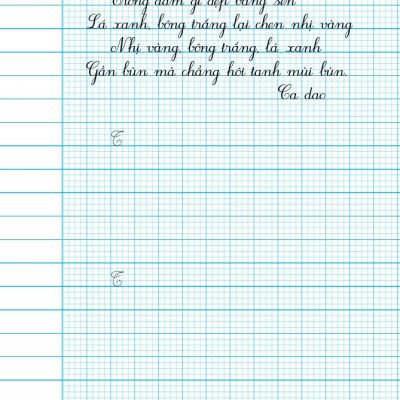 Trong đầm gì đẹp bằng sen
Lá xanh, bông trắng lại chen nhị vàng
Nhị vàng, bông trắng, lá xanh
Gần bùn mà chẳng hôi tanh mùi bùn.
Ca dao
T
T